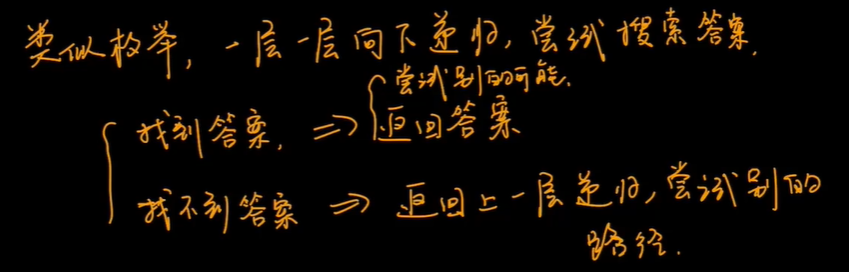 类似枚举，一层一层向下递归，尝试搜索答案.
尝试别的可能.
找到答案, ⇒ 返回答案
找不到答案 ⇒ 返回上一层递归, 尝试别的
路径.